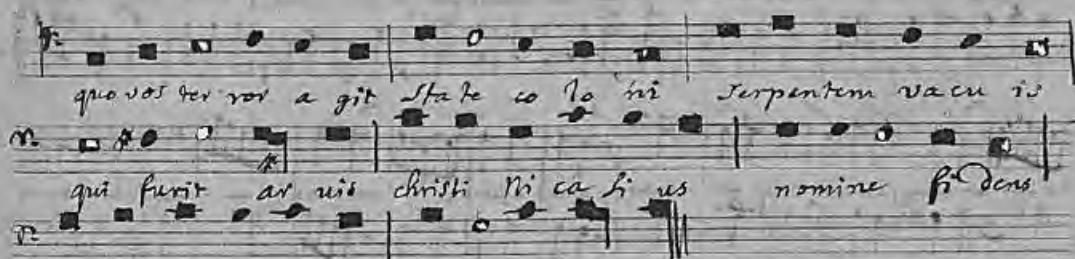 quo vos ter ror a git sta te co lo ni serpentem vacu is
qui furit ar vis christi Ni ca si us nomine fi dens